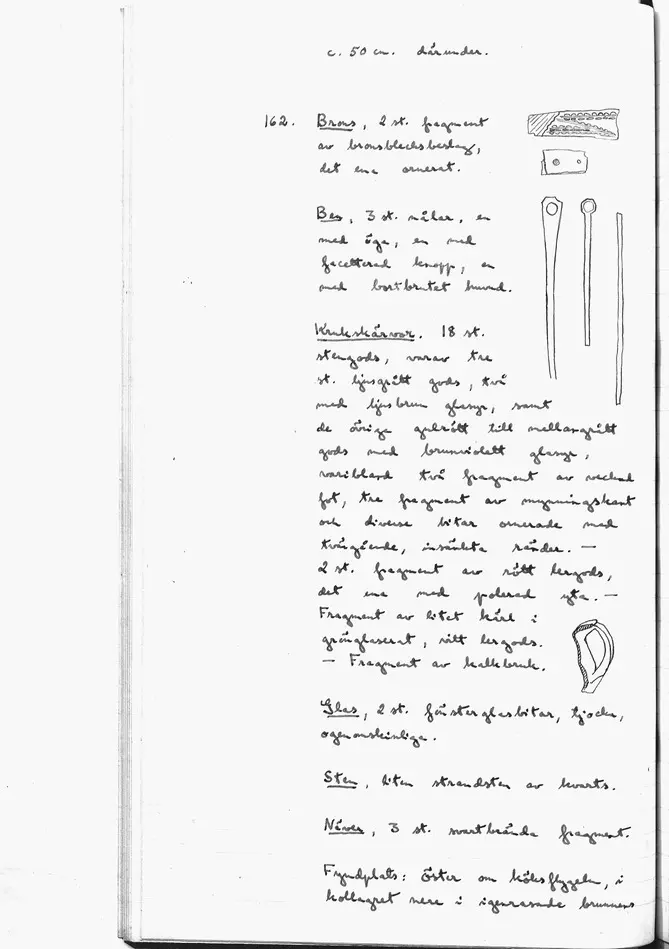 c. 50 cm. därunder.
162. Brons, 2 st. fragment
av bronsblecksbeslag,
det ena ornerat.
Ben, 3 st. nålar, en
med öga, en med
facetterad knopp, en
med bortbrutet huvud.
Krukskärvor. 18 st.
stengods, varav tre
st. ljusgrått gods, två
med ljusbrun glasyr, samt
de övriga gulrött till mellangrått
gods med brunviolett glasyr,
varibland två fragment av veckad
fot, tre fragment av mynningskant
och diverse bitar ornerade med
tvärgående, insänkta ränder. —
2 st. fragment av rött lergods,
det ena med polerad yta. —
Fragment av litet kärl i
grönglaserat, vitt lergods.
— Fragment av kalkbruk.
Glas, 2 st. fönsterglasbitar, tjocka,
ogenomskinliga.
Sten, liten strandsten av kvarts.
Näver, 3 st. svartbrända fragment.
Fyndplats: öster om köksflygeln, i
kollagret nere i igenrasade brunnens